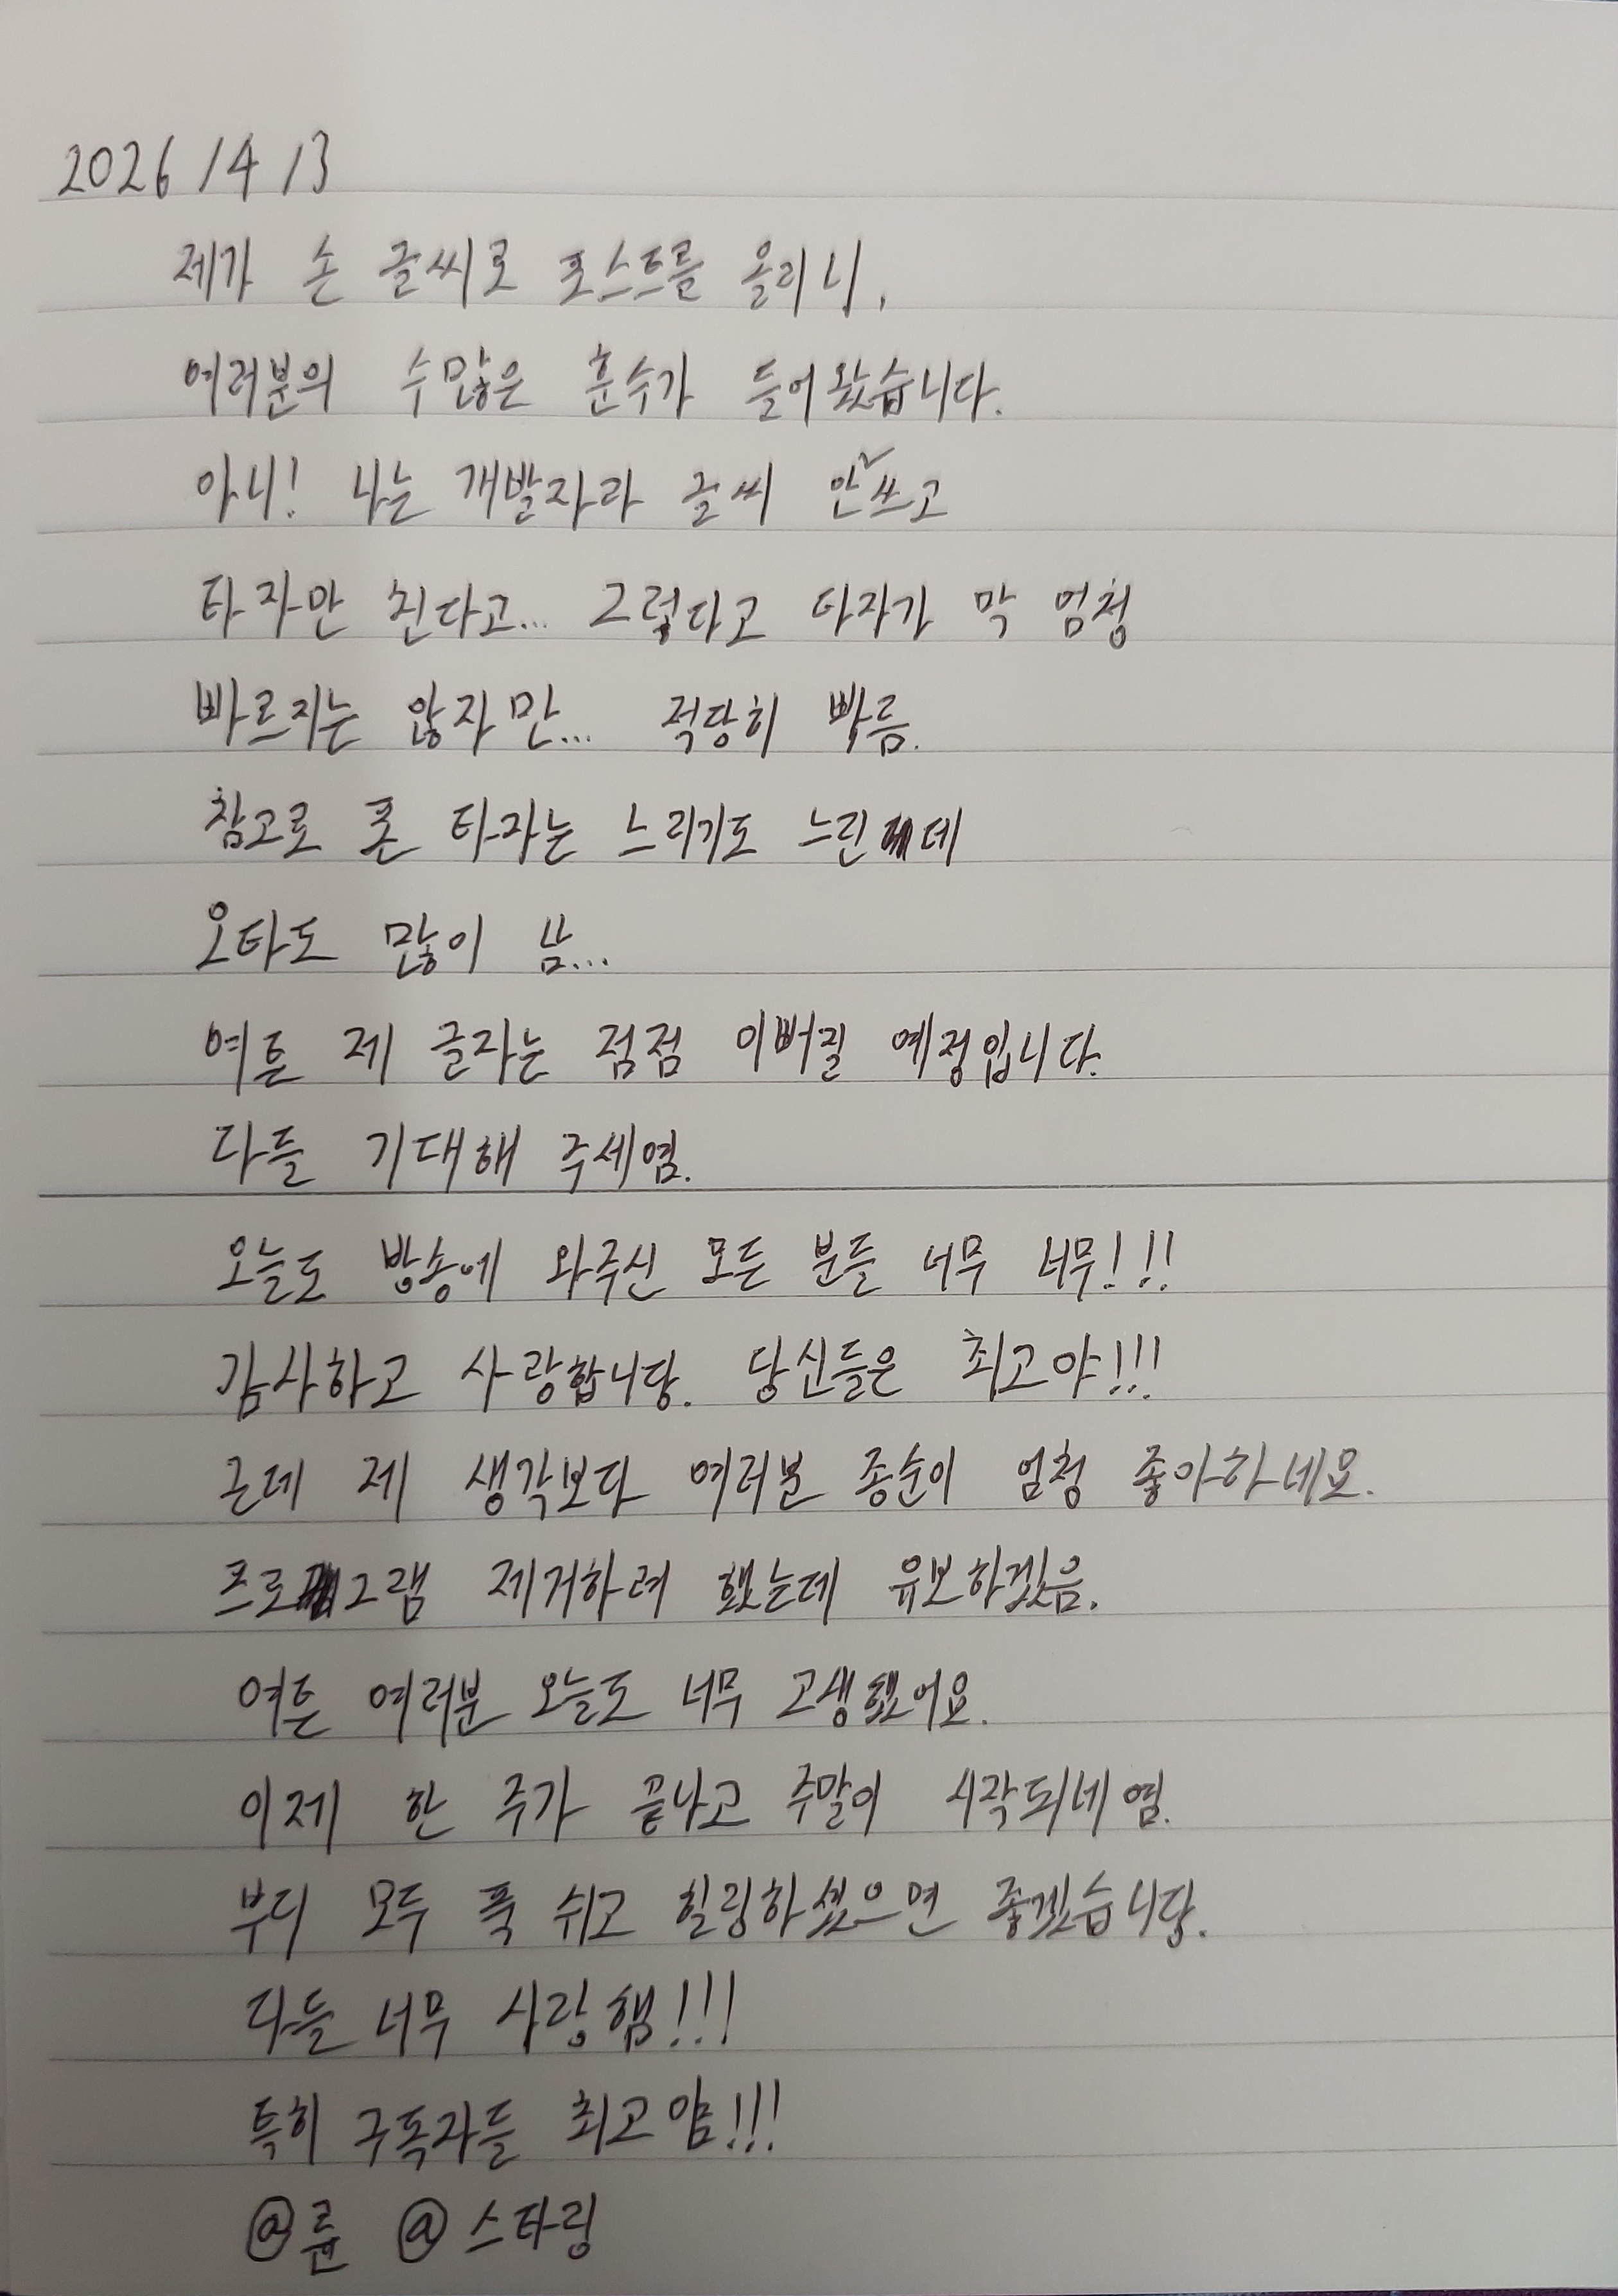 2026/4/3
제가 손 글씨로 포스트를 올리니,
여러분의 수많은 훈수가 들어왔습니다.
아니! 나는 개발자라 글씨 안 쓰고
타자만 친다고... 그렇다고 타자가 막 엄청
빠르지는 않지만... 적당히 빠름.
참고로 폰 타자는 느리기도 느린데
오타도 많이 남...
여튼 제 글자는 점점 이뻐질 예정입니다.
다들 기대해 주세염.
오늘도 방송에 와주신 모든 분들 너무 너무!!!
감사하고 사랑합니당. 당신들은 최고야!!!
근데 제 생각보다 여러분 종순이 엄청 좋아하네요.
프로그램 제거하려 했는데 유보하겠음.
여튼 여러분 오늘도 너무 고생했어요.
이제 한 주가 끝나고 주말이 시작되네염.
부디 모두 푹 쉬고 힐링하셨으면 좋겠습니당.
다들 너무 사랑햄!!!
특히 구독자들 최고얌!!!
@륜 @스타링